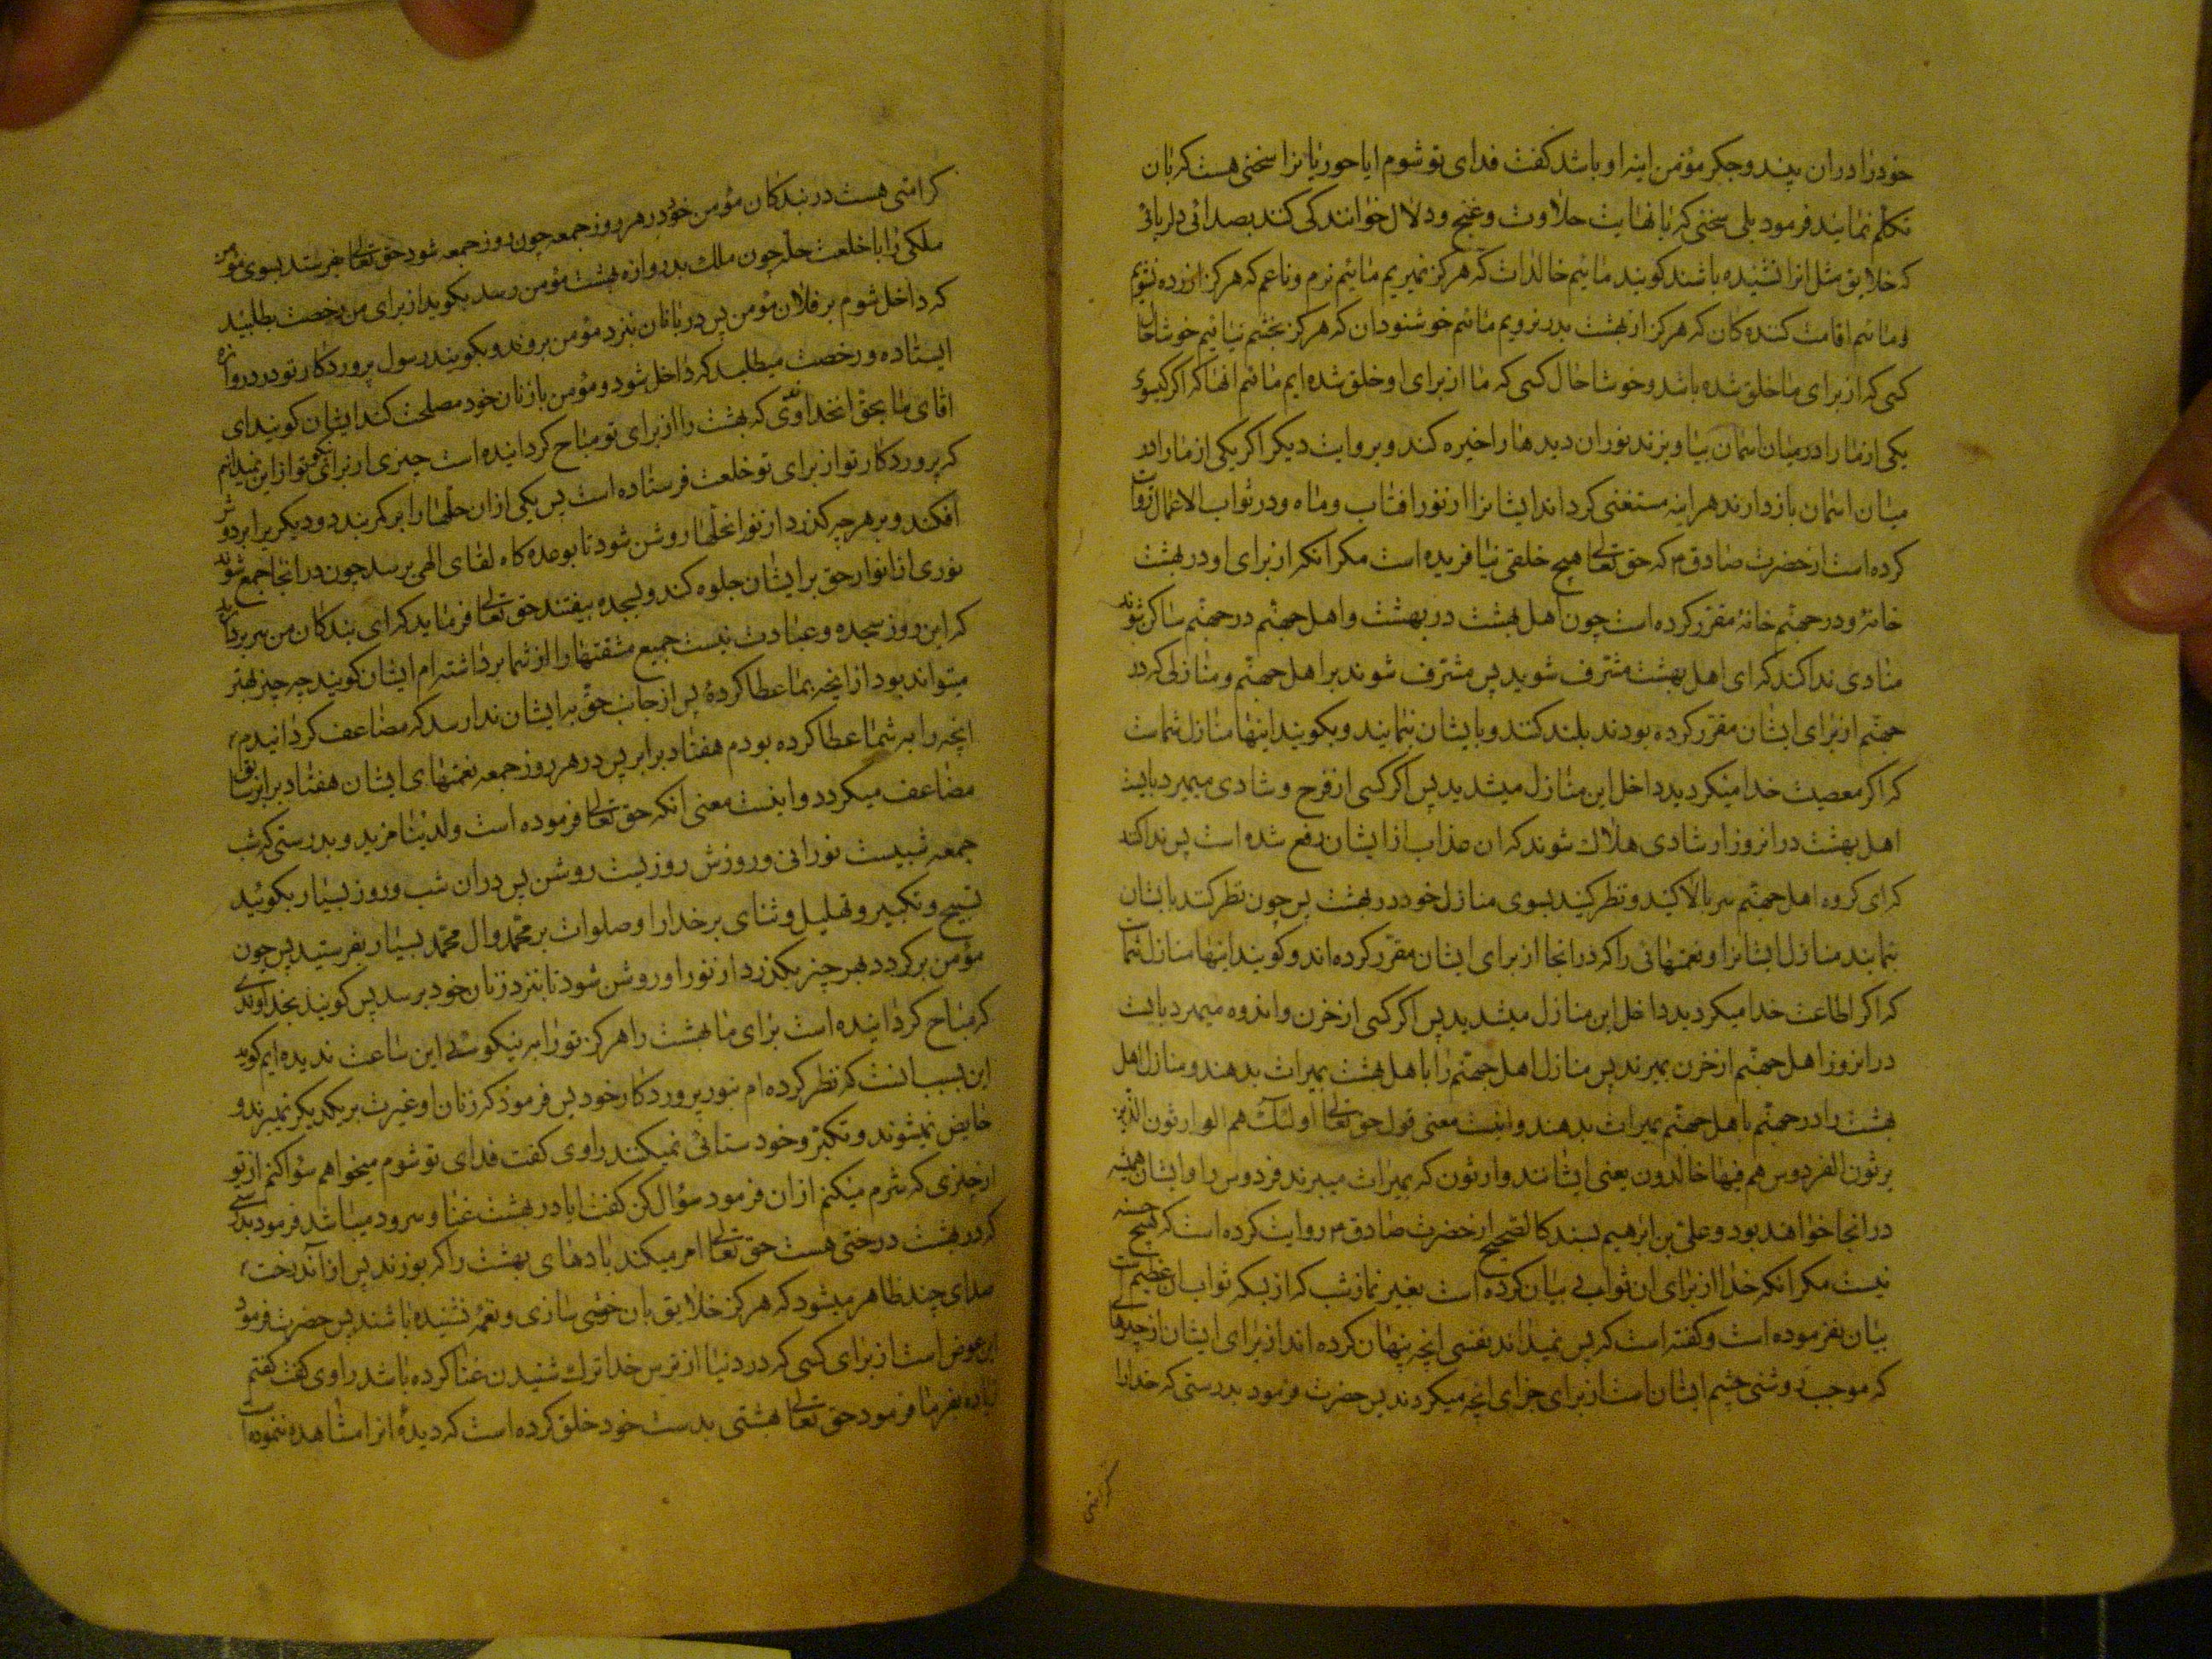 خود را در ان بیند و جکر مؤمن اینه او باشد کفت فدای تو شوم ایا حوریانرا سخنی هست که بان
تکلم نمایند فرمود بلی سخنی که بانهایت حلاوت و غنج و دلال خوانندکی کنند بصدائی دلربائی
که خلایق مثل انرا نشنیده باشند کویند مائیم خالدات که هرکز نمیریم مائیم نرم و ناعم که هرکز ازرده نشویم
و مائیم اقامت کننده کان که هرکز از بهشت بدر نرویم مائیم خوشنودان که هرکز بخشم نیائیم خوشا حال
کسی که از برای ما خلق شده باشد و خوشا حال کسی که ما از برای او خلق شده ایم مائیم انها که اکر کیسوی
یکی از ما را در میان اسمان بیاویزند نوران دیدها را خیره کند و بروایت دیکر اکر یکی از ما را در
میان اسمان بازدارند هراینه مستغنی کرداند ایشانرا از نور افتاب و ماه و در ثواب الاعمال روایت
کرده است از حضرت صادق م که حق تعالی هیچ خلقی نیافریده است مکر انکه از برای او در بهشت
خانۀ و در جهنم خانۀ مقرر کرده است چون اهل بهشت در بهشت و اهل جهنم در جهنم ساکن شوند
منادی ندا کند که ای اهل بهشت مشرف شوید پس مشرف شوند بر اهل جهنم و منازلی که در
جهنم از برای ایشان مقرر کرده بودند بلند کنند و بایشان نمایند و بکویند اینها منازل شماست
که اکر معصیت خدا میکردید داخل این منازل میشدید پس اکر کسی از فرح و شادی میمیرد بایست
اهل بهشت در انروز از شادی هلاک شوند که ان عذاب از ایشان رفع شده است پس ندا کند
که ای کروه اهل جهنم سر بالا کنید و نظر کنید بسوی منازل خود در بهشت پس چون نظر کنند بایشان
بنمایند منازل ایشانرا و نعمتهائی را که در انجا از برای ایشان مقرر کرده اند و کویند اینها منازل شماست
که اکر اطاعت خدا میکردید داخل این منازل میشدید پس اکر کسی از حزن و اندوه میمرد بایست
در انروز اهل جهنم از حزن بمیرند پس منازل اهل جهنم را باهل بهشت بمیراث بدهند و منازل اهل
بهشت را در جهنم باهل جهنم بمیراث بدهند و اینست معنی قول حق تعالی اولئک هم الوارثون الذین
یرثون الفردوس هم فیها خالدون یعنی ایشانند وارثون که بمیراث میبرند فردوس را و ایشان همیشه
در انجا خواهند بود و علی بن ابرهیم بسند کالصحیح از حضرت صادق م روایت کرده است که هیچ حسنه
نیست مکر انکه خدا از برای ان ثوابی بیان کرده است بغیر نماز شب که از بسکه ثواب ان عظیم است
بیان نفرموده است و کفته است که پس نمیداند نفسی انچه پنهان کرده اند از برای ایشان از چیزهائی
که موجب روشنی چشم ایشان است از برای جزای انچه میکردند پس حضرت فرمود بدرستی که خدا را
کرامتی
کرامتی هست در بندکان مؤمن خود در هر روز جمعه چون روز جمعه شود حق تعالی میفرستد بسوی مؤمن
ملکی را با خلعت حله چون ملک بدروازه بهشت مؤمن رسد بکوید از برای من رخصت بطلبید
که داخل شوم بر فلان مؤمن پس دربانان بنزد مؤمن بروند و بکویند رسول پروردکار تو در دروازه
ایستاده و رخصت میطلبد که داخل شود و مؤمن با زنان خود مصلحت کند ایشان کویند ای
اقای ما بحق انخداوندی که بهشت را از برای تو مباح کردانیده است چیزی از برای تو نیکوتر از این نمیدانیم
که پروردکار تو از برای تو خلعت فرستاده است پس یکی از ان حلها را بر کمر بندد و دیکریرا بر دوش
افکند و بر هر چه کذرد از نور انحلها روشن شود تا بوعده کاه لقای الهی برسد چون در انجا جمع شوند
نوری از انوار حق بر ایشان جلوه کند و بسجده بیفتند حق تعالی فرماید که ای بندکان من سر بردارید
که این روز سجده و عبادت نیست جمیع مشقتها را از شما برداشته ام ایشان کویند چه چیز بهتر
میتواند بود از انچه بما عطا کردۀ پس از جانب حق به ایشان ندا رسد که مضاعف کردانیدم
انچه را به شما عطا کرده بودم هفتاد برابر پس در هر روز جمعه نعمتهای ایشان هفتاد برابر سابق
مضاعف میکردد و اینست معنی انکه حق تعالی فرموده است ولدینا مزید و بدرستی که شب
جمعه شبیست نورانی و روزش روزیست روشن پس در ان شب و روز بسیار بکوئید
تسبیح و تکبیر و تهلیل و ثنای بر خدا را و صلوات بر محمد و ال محمد بسیار بفرستید پس چون
مؤمن برکردد بهر چیز بکذرد از نور او روشن شود تا بنزد زنان خود برسد پس کویند بخداوندی
که مباح کردانیده است برای ما بهشت را هرکز تو را به نیکوئی این ساعت ندیده ایم کوید
این بسبب انست که نظر کرده ام بنور پروردکار خود پس فرمود که زنان او غیرت بر یکدیکر نمیبرند و
حایض نمیشوند و تکبر و خودستائی نمیکنند راوی کفت فدای تو شوم میخواهم سؤال کنم از تو
از چیزی که شرم میکنم از ان فرمود سؤال کن کفت ایا در بهشت غنا و سرود میباشد فرمود بدرستی
که در بهشت درختی هست حق تعالی امر میکند بادهای بهشت را که بوزند پس از آندرخت
صدای چند ظاهر میشود که هرکز خلایق بان خوشی سازی و نغمۀ نشنیده باشند پس حضرت فرمود
این عوض است از برای کسی که در دنیا از ترس خدا ترک شنیدن غنا کرده باشد راوی کفت کفتم
زیاده بفرما فرمود حق تعالی بهشتی بدست خود خلق کرده است که دیدۀ انرا مشاهده ننموده است